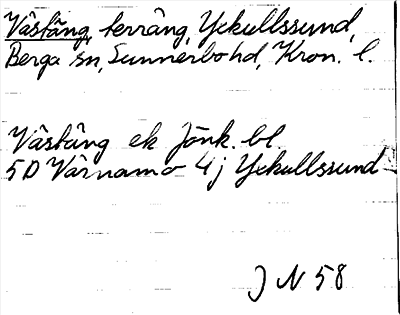 Västäng, terräng, Yckullssund,
Berga sn, Sunnerbo hd, Kron. l.
Västäng ek Jönk. bl.
5D Värnamo 4j Yckullssund
J N 58